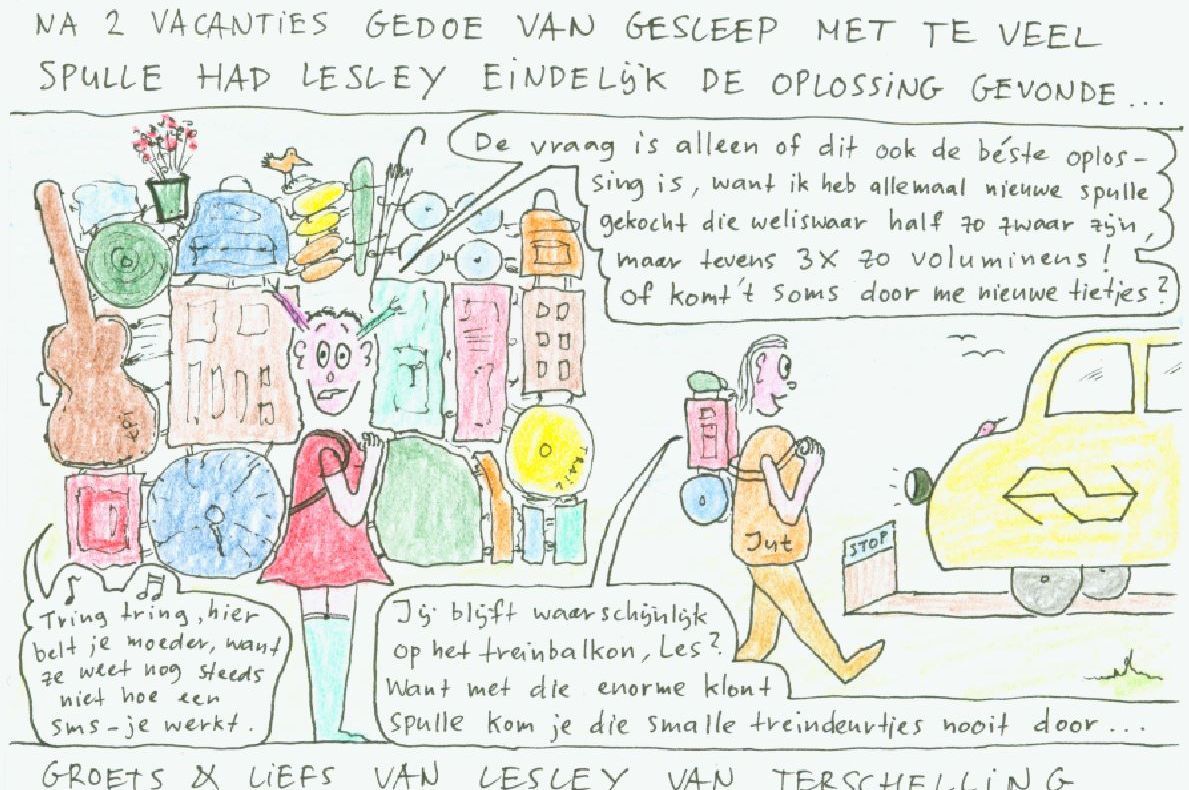 NA 2 VACANTIES GEDOE VAN GESLEEP MET TE VEEL
SPULLE HAD LESLEY EINDELIJK DE OPLOSSING GEVONDE...
De vraag is alleen of dit ook de béste oplos-
sing is, want ik heb allemaal nieuwe spulle
gekocht die weliswaar half zo zwaar zijn,
maar tevens 3X zo voluminens!
of komt 't soms door me nieuwe tietjes?
TRAIL
Jut
STOP
Tring tring, hier
belt je moeder, want
ze weet nog steeds
niet hoe een
sms-je werkt.
Jij blijft waarschijnlijk
op het treinbalkon, Les?
Want met die enorme klont
spulle kom je die smalle treindeurtjes nooit door...
GROETS & LIEFS VAN LESLEY VAN TERSCHELLING